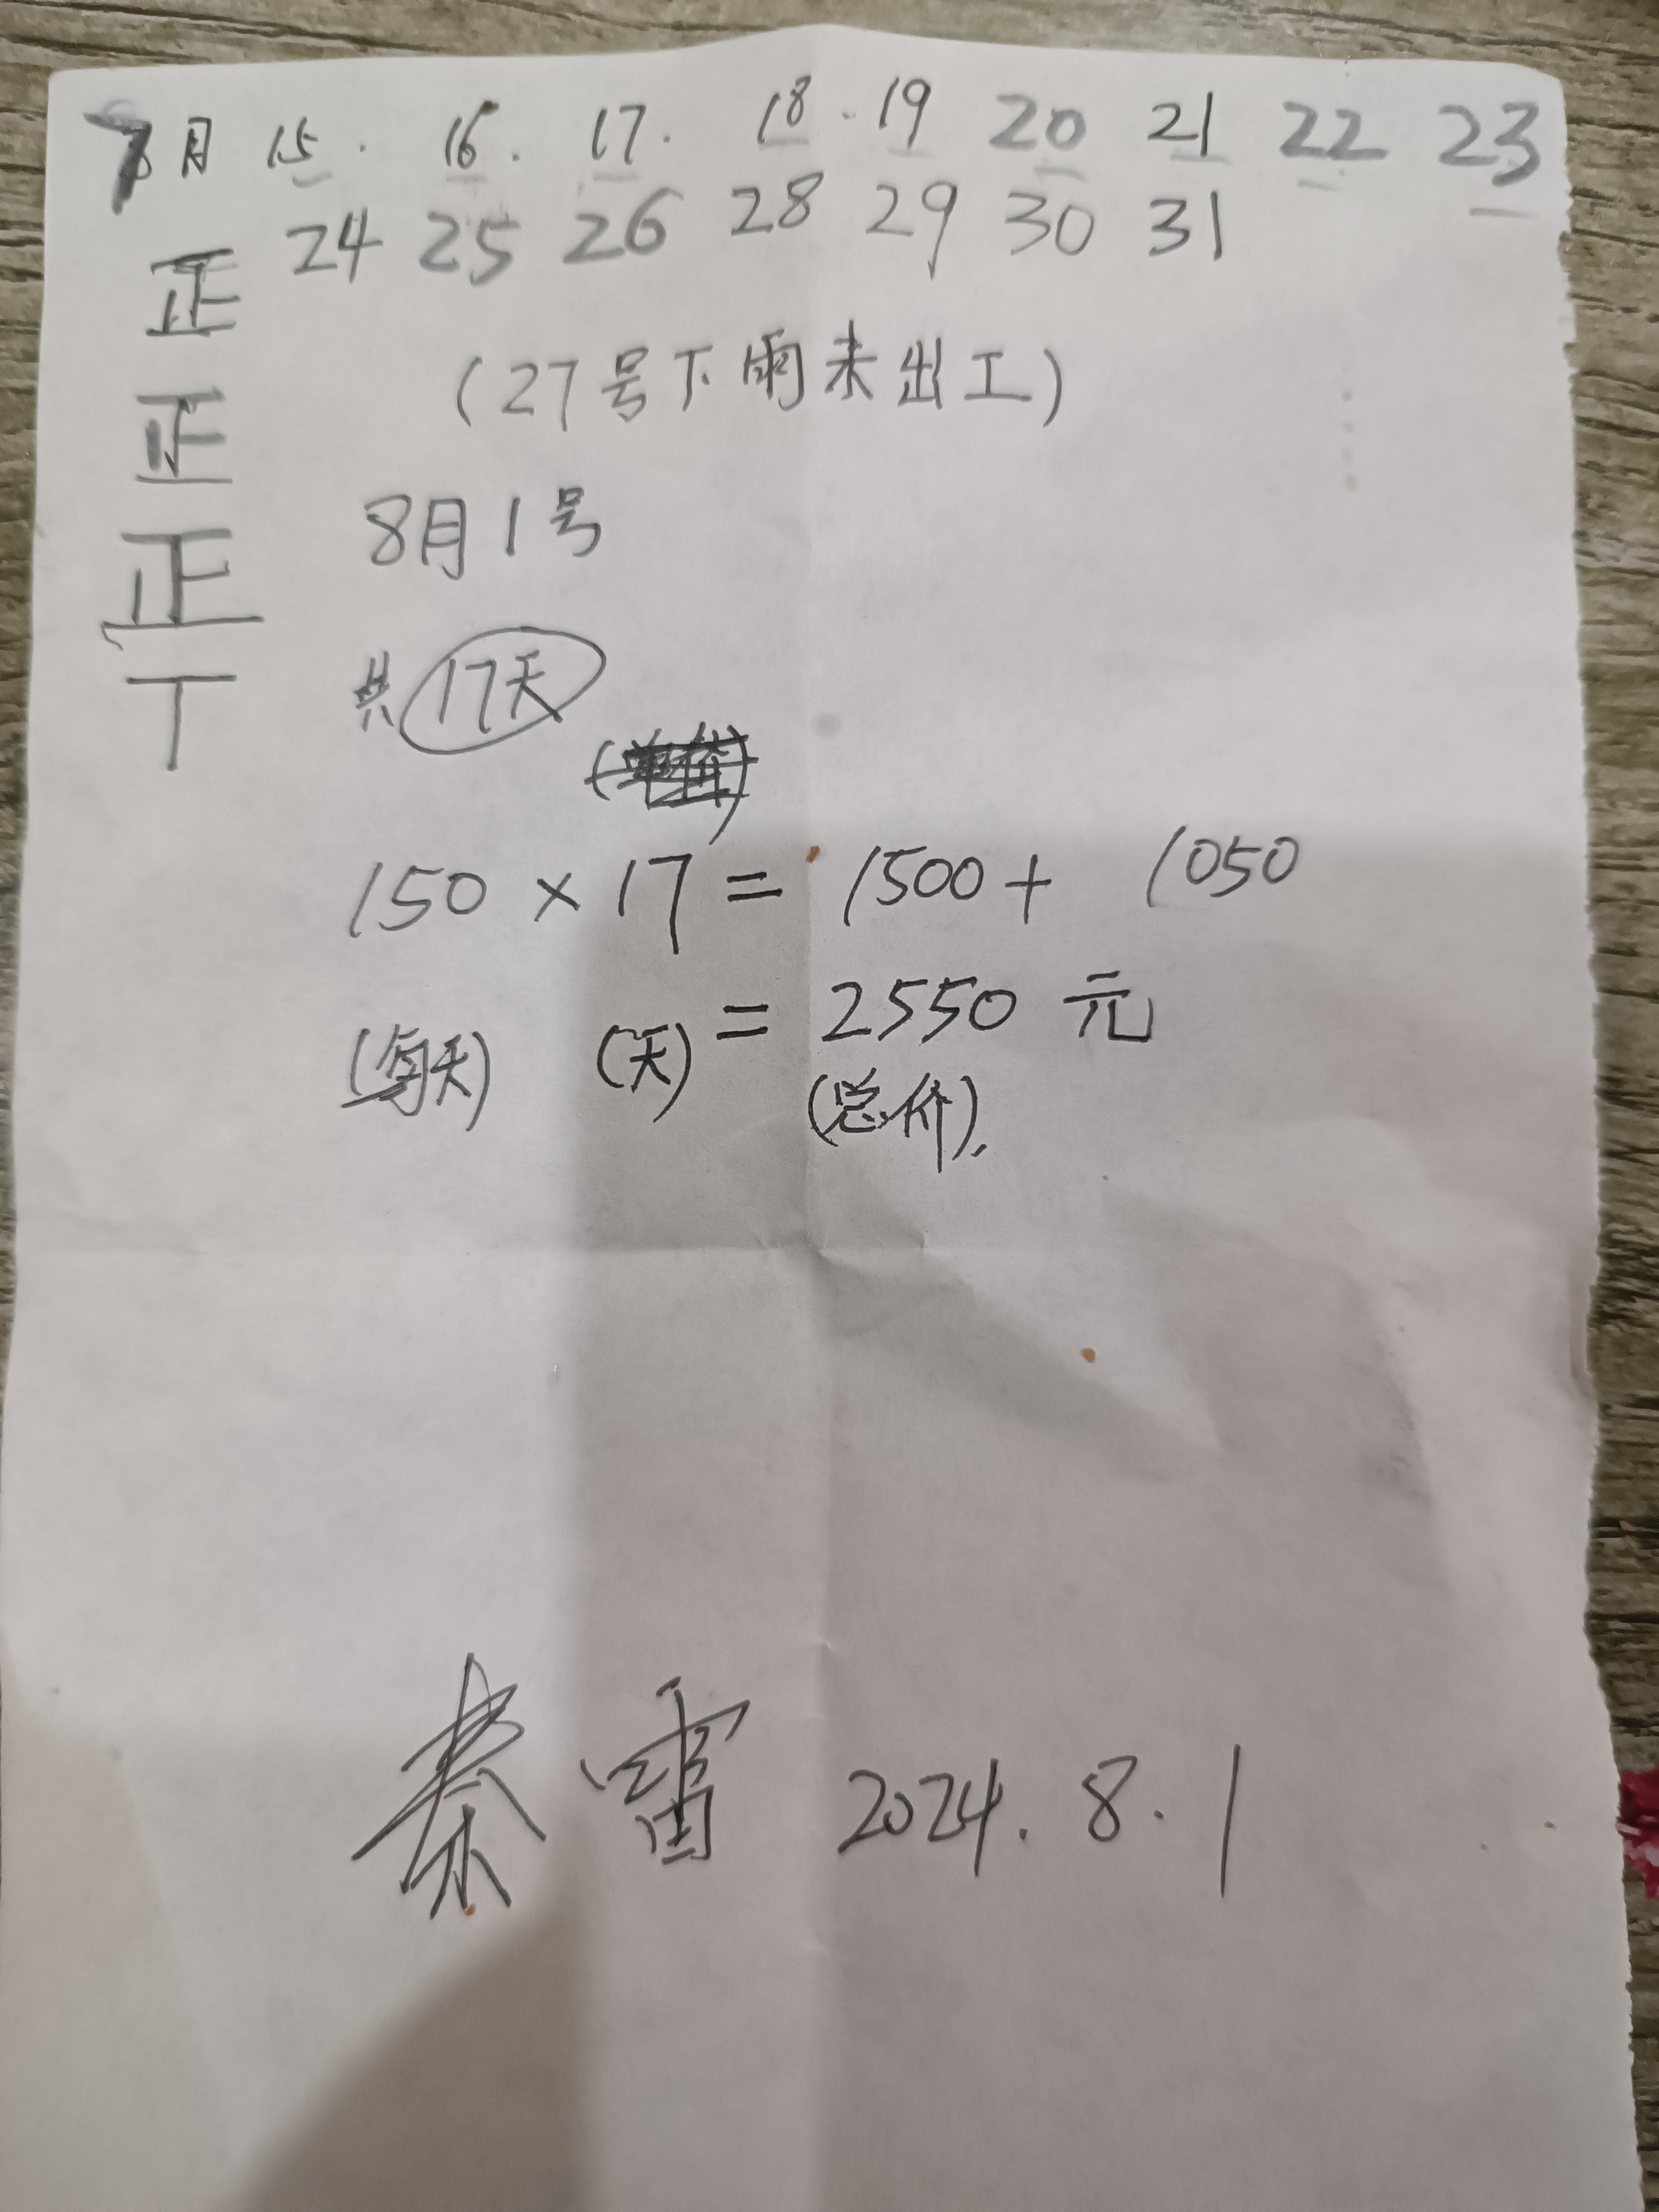 7月 15. 16. 17. 18. 19 20 21 22 23
24 25 26 28 29 30 31
正
(27号下雨未出工)
正
8月1号
正
共17天
丅
150 × 17 = 1500 + 1050
= 2550 元
(每天) (天) (总价).
秦雷 2024.8.1